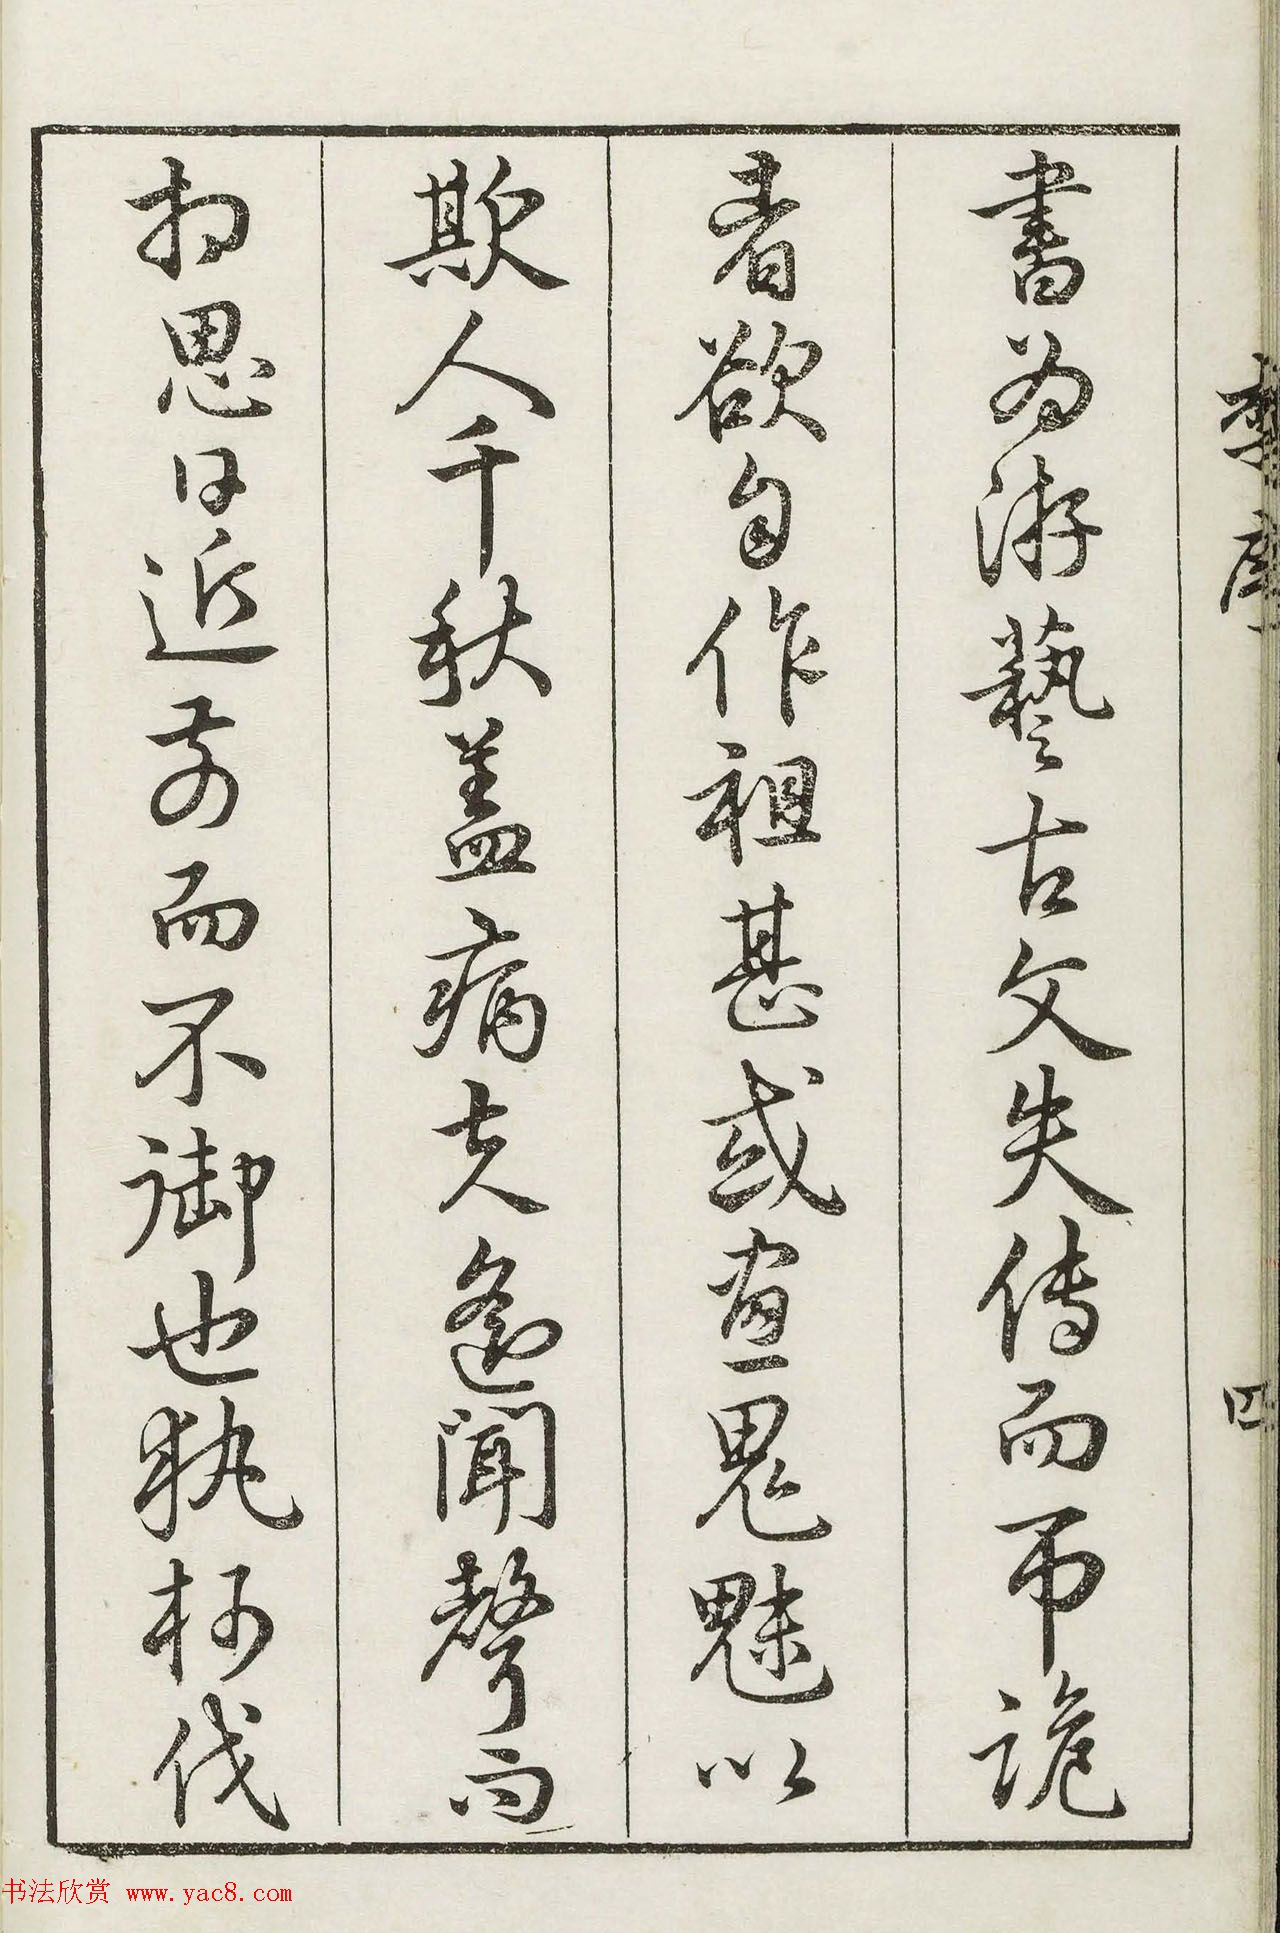 書為游藝古文失傳而弔詭
者欲自作祖甚或畫鬼魅以
欺人千秋蓋病夫遙聞聲而
相思日近前而不御也執柯伐
李序
四
书法欣赏 www.yac8.com